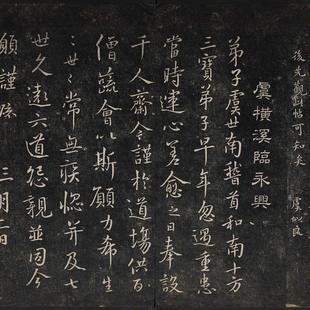 後先觀對帖可知矣
虞似良
虞橫溪臨永興
弟子虞世南稽首和南十方
三寶弟子早年忽遇重患
當時運心差愈之日奉設
千人齋今謹於道場供百
僧蔬會以斯願力希生
世世常無疾惱并及七
世久遠六道怨親並同今
願謹疏 二月